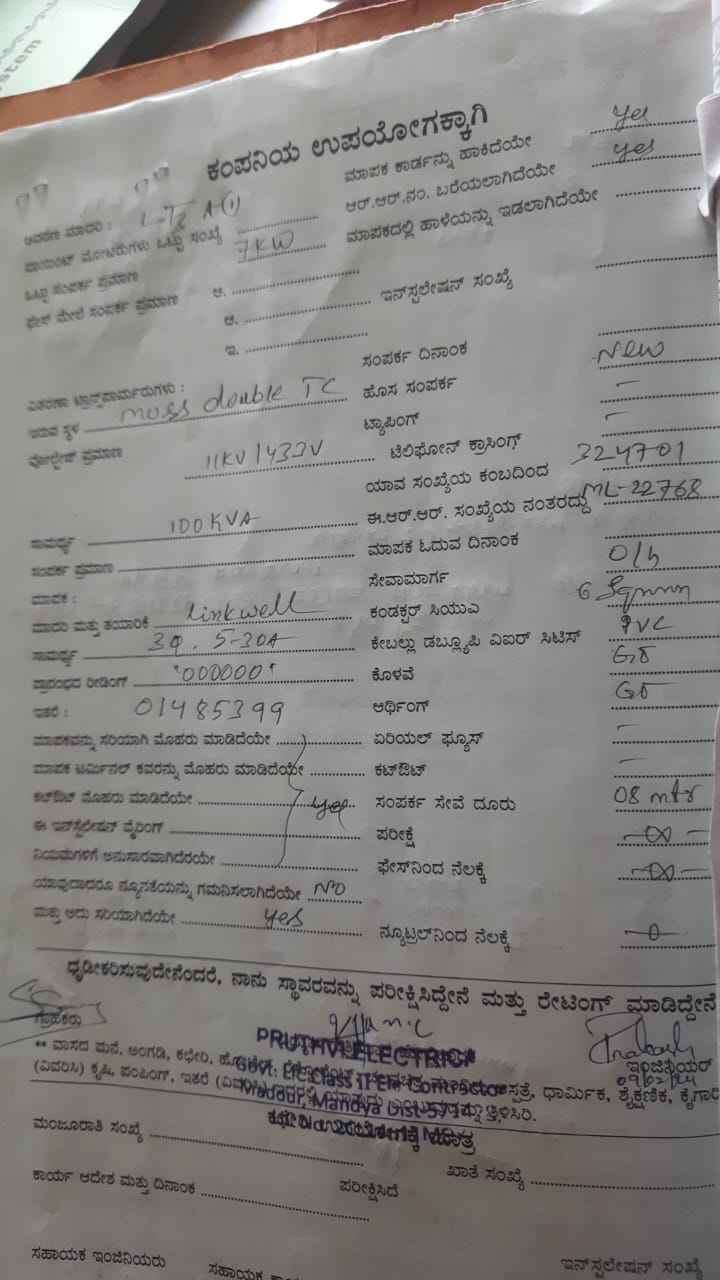 stem
ಕಂಪನಿಯ ಉಪಯೋಗಕ್ಕಾಗಿ
ಮಾಪಕ ಕಾರ್ಡನ್ನು ಹಾಕಿದೆಯೇ yes
ಆವರಣ ಮಾದರಿ : LT2 A(1) ಆರ್.ಆರ್.ನಂ. ಬರೆಯಲಾಗಿದೆಯೇ yes
ಪಾಯಿಂಟ್ ಮೋಟರುಗಳು ಒಟ್ಟು ಸಂಖ್ಯೆ ಮಾಪಕದಲ್ಲಿ ಹಾಳೆಯನ್ನು ಇಡಲಾಗಿದೆಯೇ
ಒಟ್ಟು ಸಂಪರ್ಕ ಪ್ರಮಾಣ 7KW
ಫೇಸ್ ಮೇಲೆ ಸಂಪರ್ಕ ಪ್ರಮಾಣ ಅ. ಇನ್‌ಸ್ಟಲೇಷನ್ ಸಂಖ್ಯೆ
ಆ.
ಇ. ಸಂಪರ್ಕ ದಿನಾಂಕ
ವಿತರಣಾ ಟ್ರಾನ್ಸ್‌ಫಾರ್ಮರುಗಳು : ಹೊಸ ಸಂಪರ್ಕ New
ಇರುವ ಸ್ಥಳ double TC ಟ್ಯಾಪಿಂಗ್ –
ವೋಲ್ಟೇಜ್ ಪ್ರಮಾಣ 11KV/433V ಟೆಲಿಫೋನ್ ಕ್ರಾಸಿಂಗ್ –
ಯಾವ ಸಂಖ್ಯೆಯ ಕಂಬದಿಂದ 324701
ಸಾಮರ್ಥ್ಯ 100KVA ಈ.ಆರ್.ಆರ್. ಸಂಖ್ಯೆಯ ನಂತರದ್ದು ML-22768
ಸಂಪರ್ಕ ಪ್ರಮಾಣ ಮಾಪಕ ಓದುವ ದಿನಾಂಕ
ಮಾಪಕ : ಸೇವಾಮಾರ್ಗ O/h
ಮಾದರಿ ಮತ್ತು ತಯಾರಿಕೆ linkwell ಕಂಡಕ್ಟರ್ ಸಿಯುವಿ 6 Sqmm
ಸಾಮರ್ಥ್ಯ 3Φ. 5-30A ಕೇಬಲ್ಲು ಡಬ್ಲ್ಯೂಪಿ ವಿಐರ್ ಸಿಟಿಸ್ PVC
ಪ್ರಾರಂಭದ ರೀಡಿಂಗ್ '000000' ಕೊಳವೆ GI
ಇತರೆ : 01485399 ಆರ್ಥಿಂಗ್ GI
ಮಾಪಕವನ್ನು ಸರಿಯಾಗಿ ಮೊಹರು ಮಾಡಿದೆಯೇ ಏರಿಯಲ್ ಫ್ಯೂಸ್ –
ಮಾಪಕ ಟರ್ಮಿನಲ್ ಕವರನ್ನು ಮೊಹರು ಮಾಡಿದೆಯೇ ಕಟ್‌ಔಟ್ –
ಕಟ್‌ಔಟ್ ಮೊಹರು ಮಾಡಿದೆಯೇ yes ಸಂಪರ್ಕ ಸೇವೆ ದೂರು 08 mtr
ಈ ಇನ್‌ಸ್ಟಲೇಷನ್ ವೈರಿಂಗ್ ಪರೀಕ್ಷೆ –∞–
ನಿಯಮಗಳಿಗೆ ಅನುಸಾರವಾಗಿದೆರಯೇ ಫೇಸ್‌ನಿಂದ ನೆಲಕ್ಕೆ –∞–
ಯಾವುದಾದರೂ ನ್ಯೂನತೆಯನ್ನು ಗಮನಿಸಲಾಗಿದೆಯೇ NO
ಮತ್ತು ಅದು ಸರಿಯಾಗಿದೆಯೇ yes ನ್ಯೂಟ್ರಲ್‌ನಿಂದ ನೆಲಕ್ಕೆ –0–
ಧೃಡೀಕರಿಸುವುದೇನೆಂದರೆ, ನಾನು ಸ್ಥಾವರವನ್ನು ಪರೀಕ್ಷಿಸಿದ್ದೇನೆ ಮತ್ತು ರೇಟಿಂಗ್ ಮಾಡಿದ್ದೇನೆ
ಗ್ರಾಹಕರು
PRUTHVI ELECTRICA
ಇಂಜಿನಿಯರ್
** ವಾಸದ ಮನೆ, ಅಂಗಡಿ, ಕಛೇರಿ, ಆಸ್ಪತ್ರೆ, ಧಾರ್ಮಿಕ, ಶೈಕ್ಷಣಿಕ, ಕೈಗಾರಿ
Govt. Lic Class II Ele. Contractor
(ವಿವರಿಸಿ) ಕೃಷಿ, ಪಂಪಿಂಗ್, ಇತರೆ ತಿಳಿಸಿರಿ.
Maddur, Mandya Dist
ಮಂಜೂರಾತಿ ಸಂಖ್ಯೆ ಖಾತೆ ಸಂಖ್ಯೆ
ಕಾರ್ಯ ಆದೇಶ ಮತ್ತು ದಿನಾಂಕ ಪರೀಕ್ಷಿಸಿದೆ
ಸಹಾಯಕ ಇಂಜಿನಿಯರು ಸಹಾಯಕ ಇನ್‌ಸ್ಟಲೇಷನ್ ಸಂಖ್ಯೆ